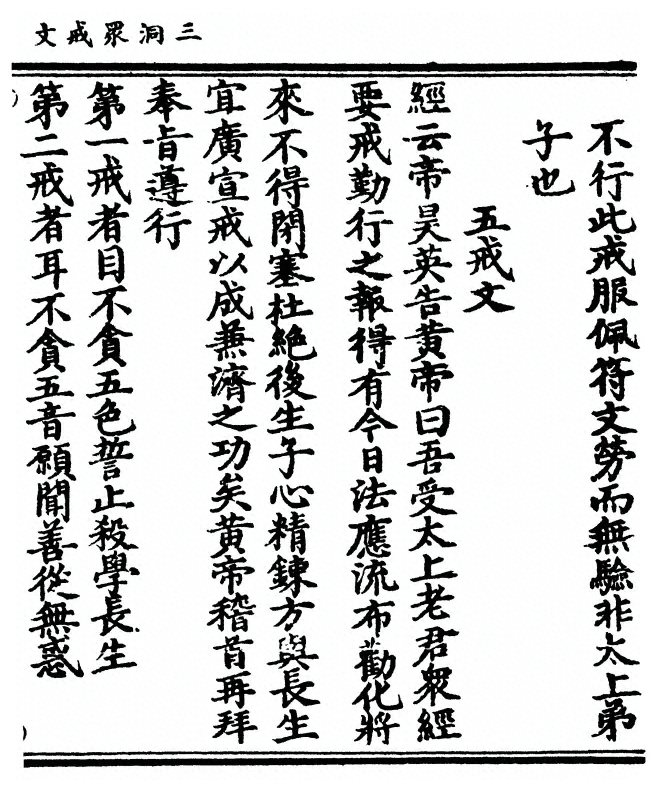 三洞眾戒文
不行此戒服佩符文勞而無驗非太上弟
子也
五戒文
經云帝昊英告黃帝曰吾受太上老君眾經
要戒勤行之報得有今日法應流布勸化將
來不得閉塞杜絕後生子心精鍊方與長生
宜廣宣戒以成兼濟之功矣黃帝稽首再拜
奉旨遵行
第一戒者目不貪五色誓止殺學長生
第二戒者耳不貪五音願聞善從無惑